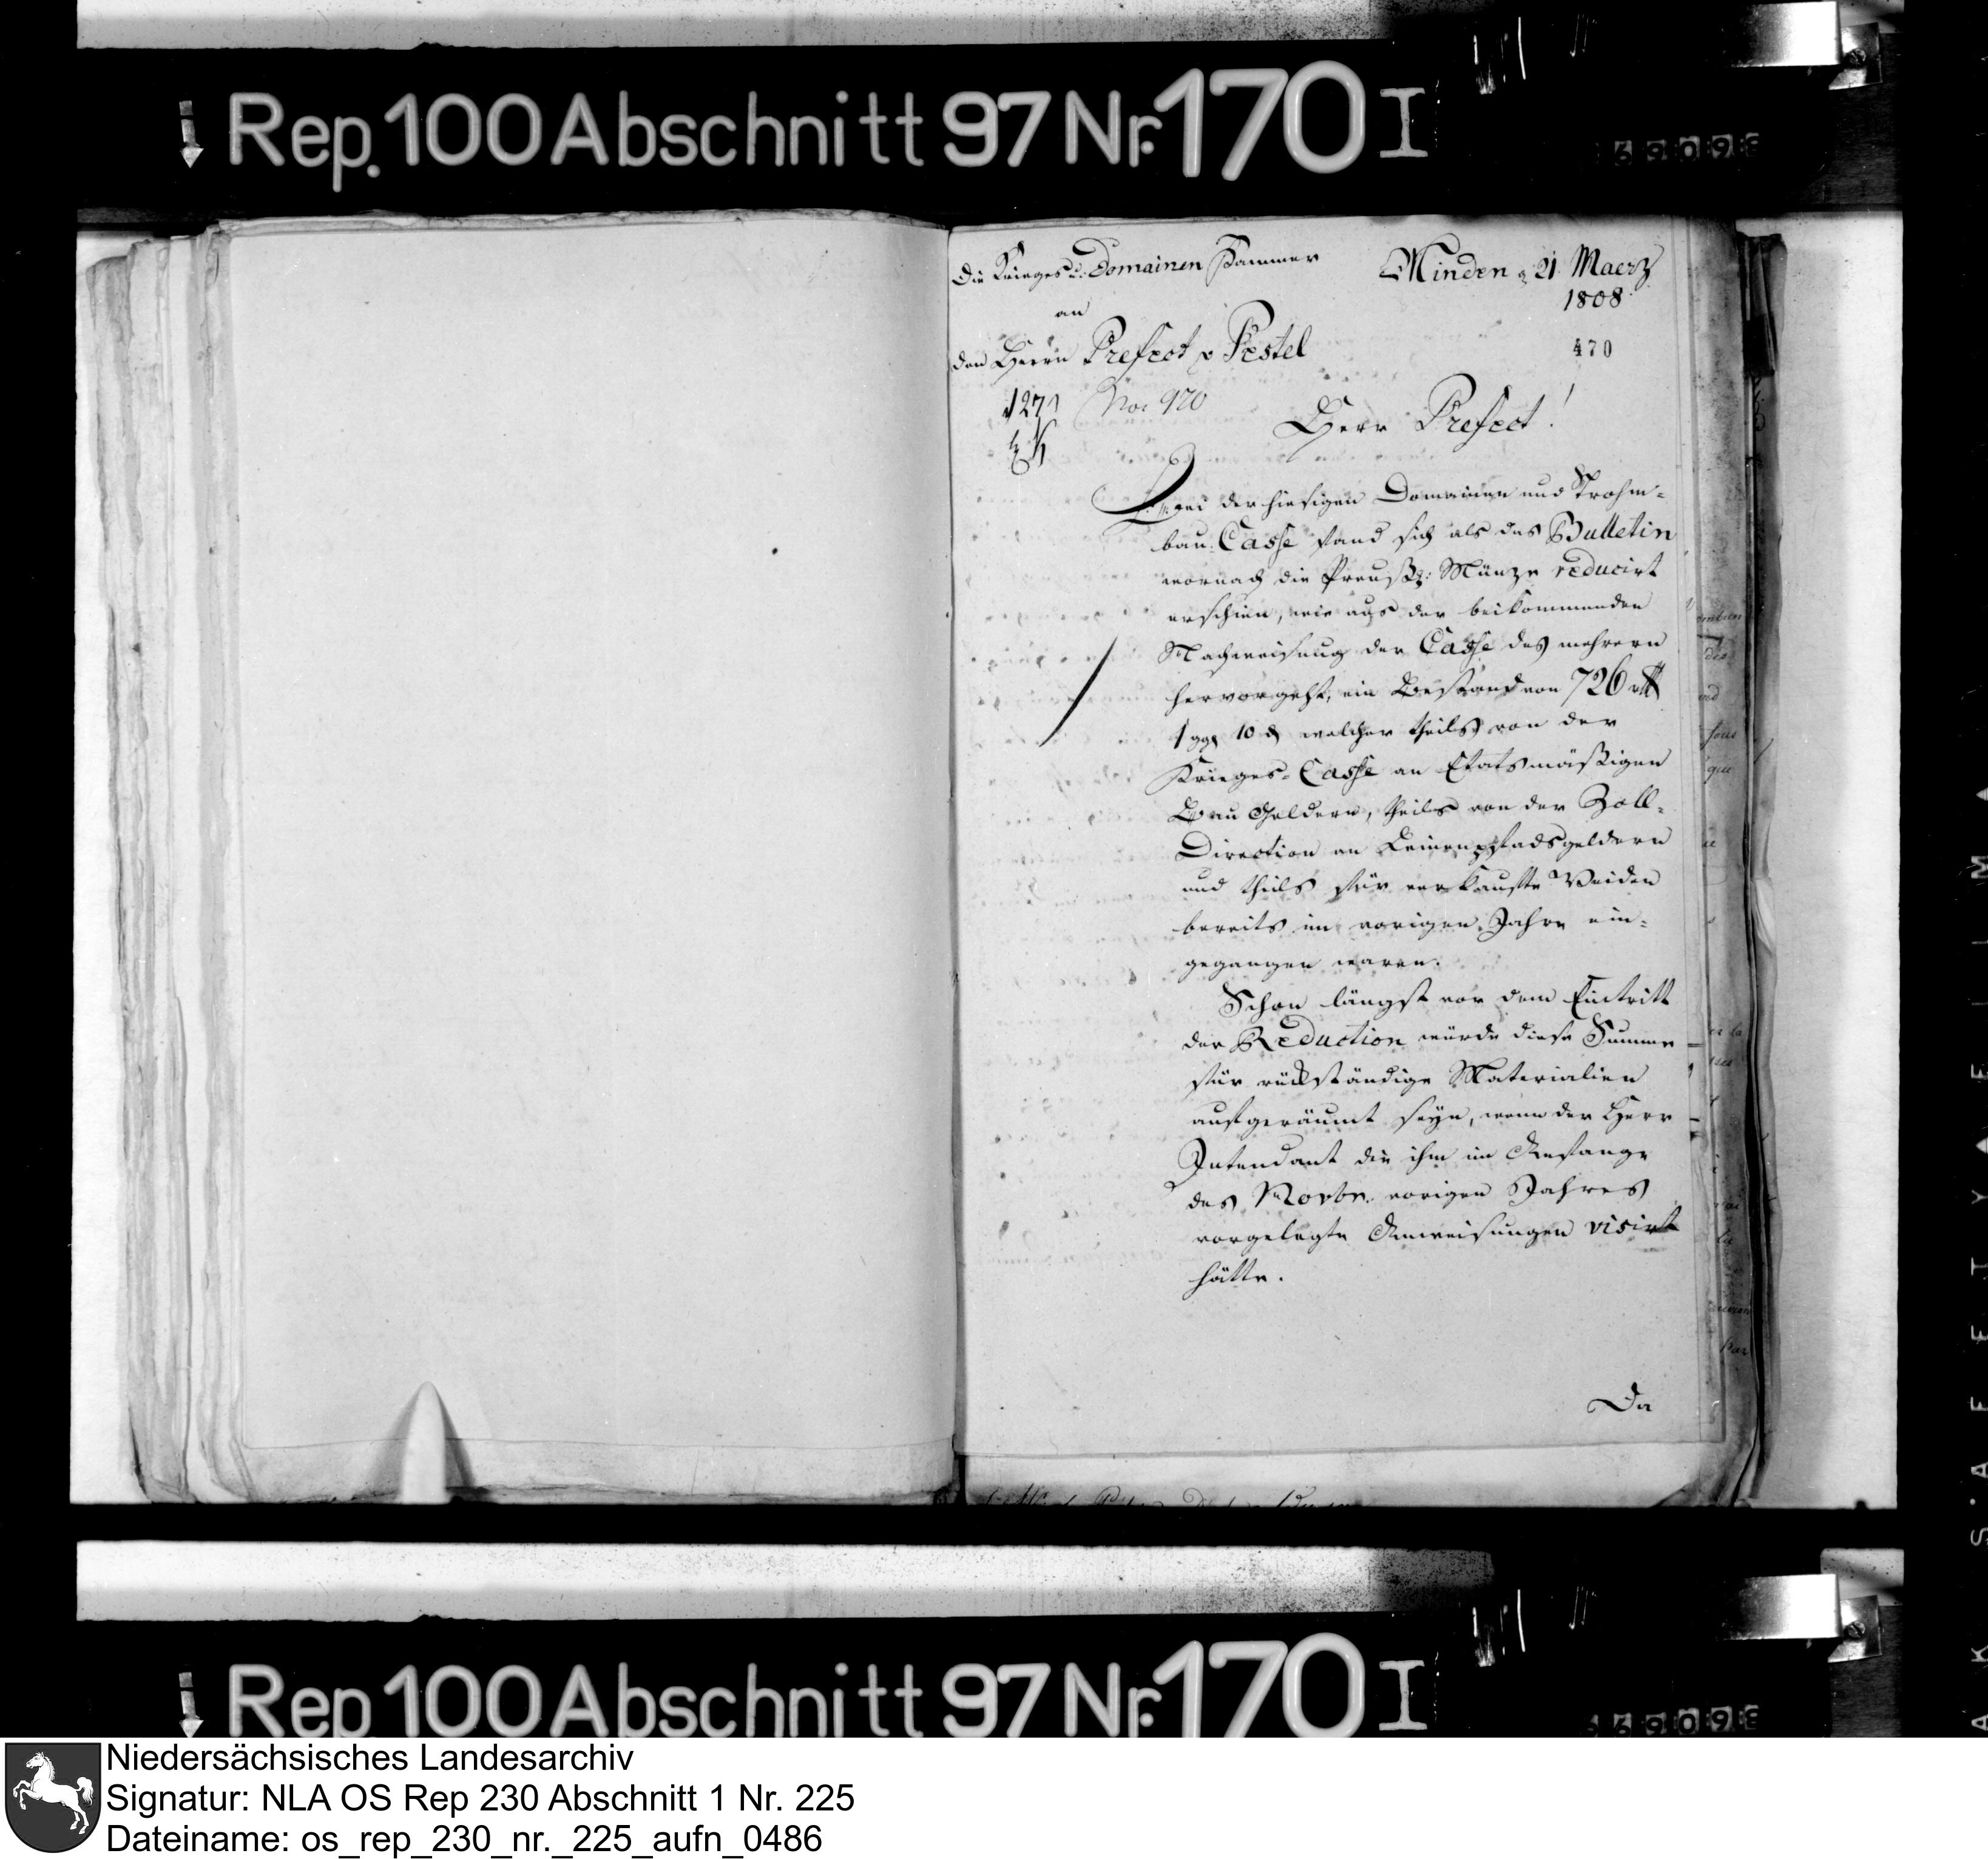 Rep. 100 Abschnitt 97 Nr. 170 I
69093
Die Krieges u: Domainen Kammer
an
den Herrn Prefect v Pestel
Minden d 21 Maerz
1808.
470
1271
No: 920
Herr Prefect!
Bei der hiesigen Domainen und Strohm-
bau-Casse fand sich als das Bulletin
wornach die Preuß: Münze reducirt
erschien, wie aus der beikommenden
Nachweisung der Casse des mehrern
hervorgeht, ein Bestand von 726 rtl
1 ggr 10 d welcher theils von der
Krieges-Casse an Etatsmäßigen
Bau Geldern, theils von der Zoll-
Direction an Leinenpfadsgeldern
und theils für verkaufte Weiden
bereits im vorigen Jahre ein-
gegangen waren.
Schon längst vor dem Eintritt
der Reduction würde diese Summe
für rückständige Materialien
aufgeräumt seyn, wenn der Herr
Intendant die ihm im Anfange
des Novbr. vorigen Jahres
vorgelegte Anweisungen visirt
hätte.
Da
Rep 100 Abschnitt 97 Nr. 170 I
69093
Niedersächsisches Landesarchiv
Signatur: NLA OS Rep 230 Abschnitt 1 Nr. 225
Dateiname: os_rep_230_nr._225_aufn_0486